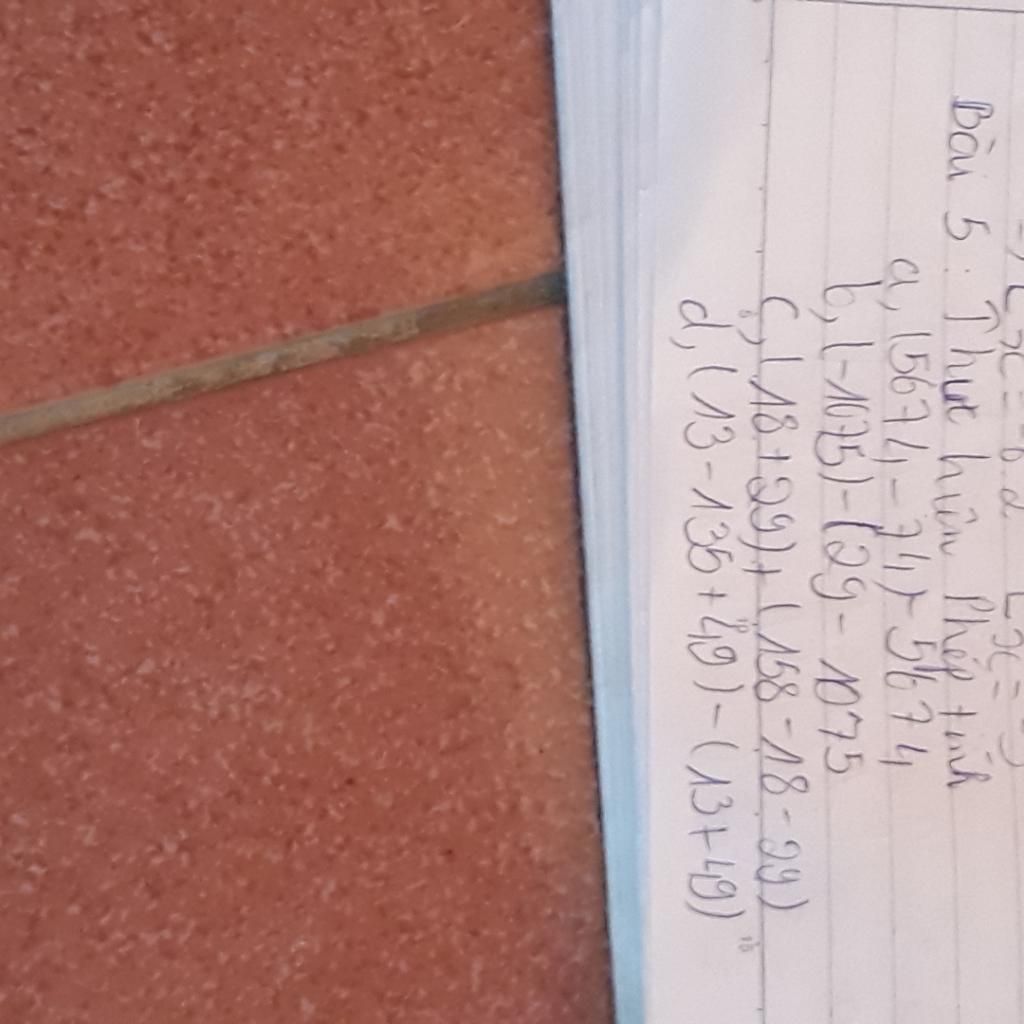 Bài 5: Thực hiện Phép tính
a, (5674 - 74) - 5674
b, (-1075) - (29 - 1075
c, (18 + 29) + (158 - 18 - 29)
d, (13 - 135 + 49) - (13 + 49)